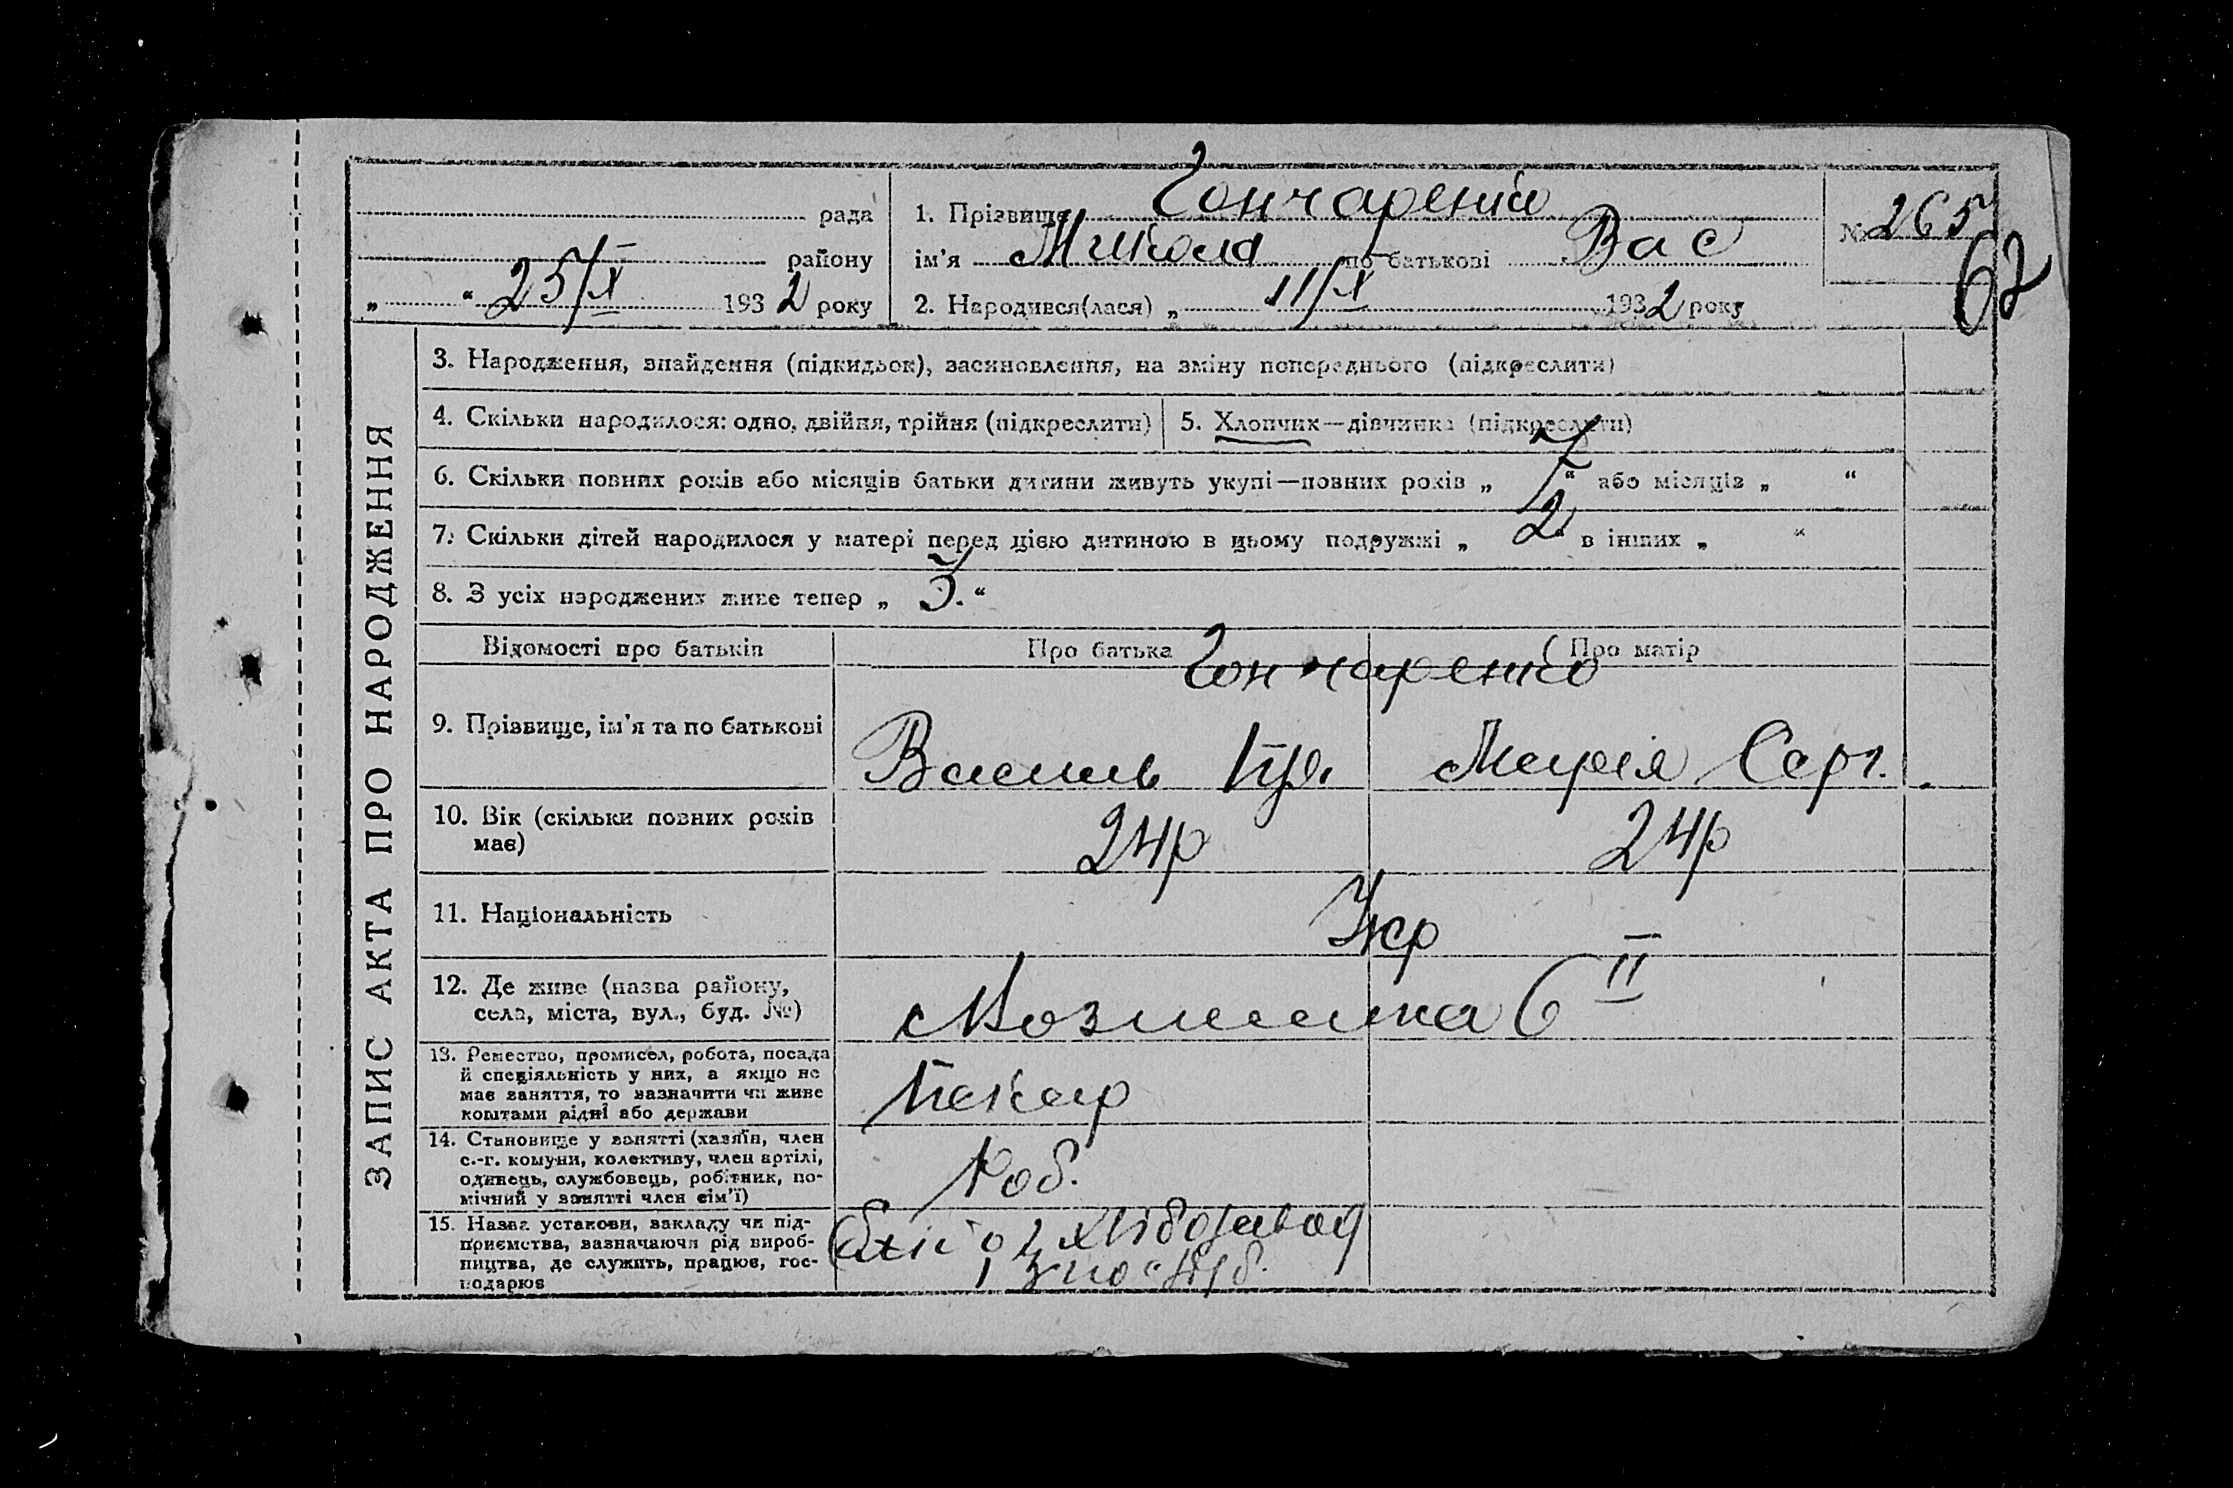 рада
району
" " 25/X 1932 року
1. Прізвище Гончаренко
ім'я Микола по батькові Вас
2. Народився(лася) " 11/X 1932 року
№ 265
62
ЗАПИС АКТА ПРО НАРОДЖЕННЯ
3. Народження, знайдення (підкидьок), засиновлення, на зміну попереднього (підкреслити)
4. Скільки народилося: одно, двійня, трійня (підкреслити)
5. Хлопчик—дівчинка (підкреслити)
6. Скільки повних років або місяців батьки дитини живуть укупі—повних років " 7 " або місяців " "
7. Скільки дітей народилося у матері перед цією дитиною в цьому подружжі " 2 в інших " "
8. З усіх народжених живе тепер " 3. "
Відомості про батьків Про батька Про матір
Гончаренко
9. Прізвище, ім'я та по батькові Василь Марія Серг.
10. Вік (скільки повних років
має) 24р 24р
11. Національність Укр
12. Де живе (назва району,
села, міста, вул., буд. №) 6 II
13. Ремество, промисел, робота, посада
й спеціяльність у них, а якщо не
має заняття, то зазначити чи живе
коштами рідні або держави Пекар
14. Становище у занятті (хазяїн, член
с.-г. комуни, колективу, член артілі,
одинець, службовець, робітник, по-
мічний у занятті член сім'ї) Роб.
15. Назва установи, закладу чи під-
приємства, зазначаючи рід вироб-
ництва, де служить, працює, гос-
подарює Хлібозавод